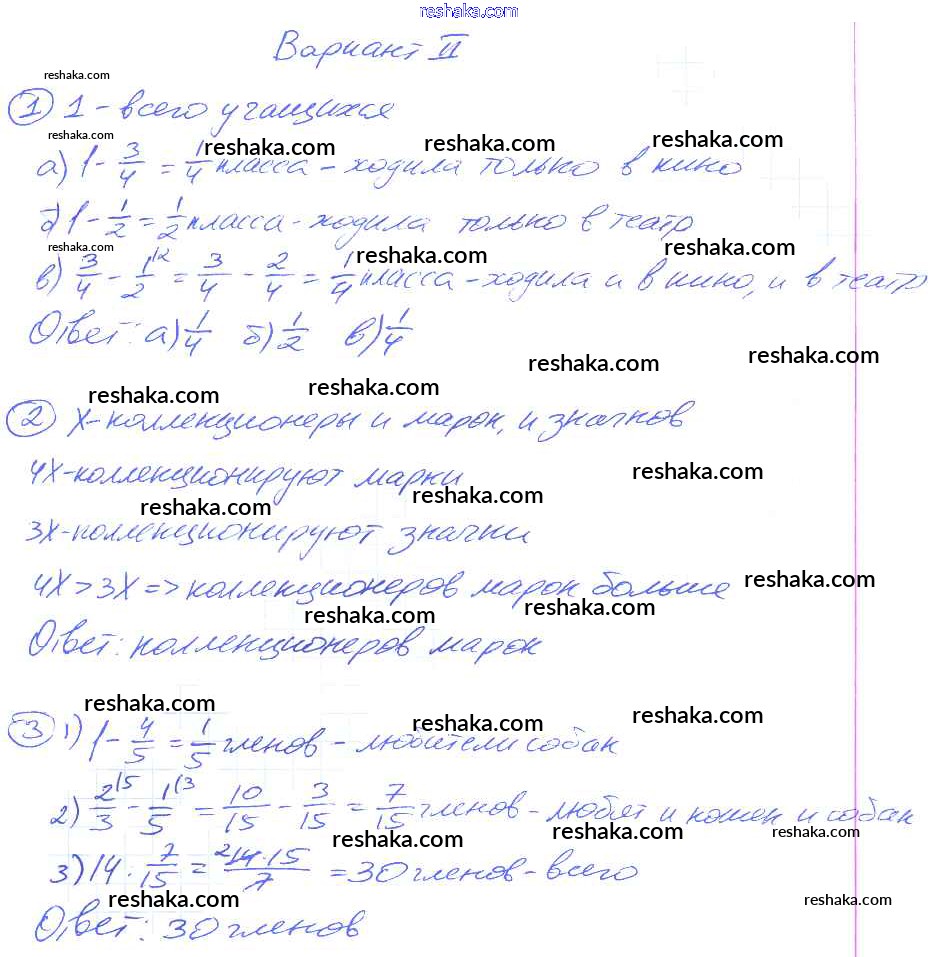 reshaka.com
Вариант II
reshaka.com
① 1 - всего учащихся
reshaka.com reshaka.com reshaka.com reshaka.com
а) 1 - 3/4 = 1/4 класса - ходила только в кино
б) 1 - 1/2 = 1/2 класса - ходила только в театр
reshaka.com reshaka.com reshaka.com
в) 3/4 - 1/2 (2 = 3/4 - 2/4 = 1/4 класса - ходила и в кино, и в театр
Ответ: а) 1/4 б) 1/2 в) 1/4
reshaka.com reshaka.com reshaka.com reshaka.com
② X - коллекционеры и марок, и значков
4X - коллекционируют марки
reshaka.com reshaka.com reshaka.com
3X - коллекционируют значки
4X > 3X => коллекционеров марок больше
reshaka.com reshaka.com reshaka.com
Ответ: коллекционеров марок
reshaka.com reshaka.com reshaka.com
③ 1) 1 - 4/5 = 1/5 членов - любители собак
2) 2/3 (5 - 1/5 (3 = 10/15 - 3/15 = 7/15 членов - любят и кошек и собак
reshaka.com reshaka.com reshaka.com
3) 14 : 7/15 = 2 14·15/7 = 30 членов - всего
reshaka.com reshaka.com reshaka.com
Ответ: 30 членов